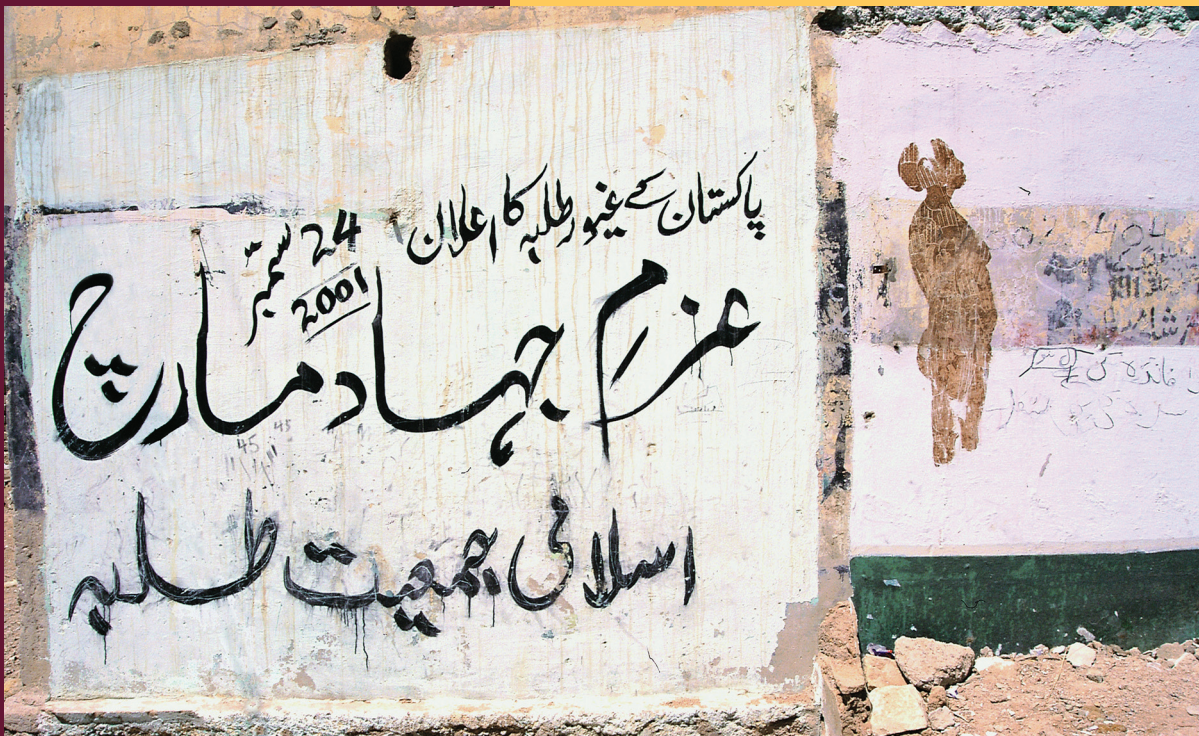 پاکستان کے غیور طلبہ کا اعلان
24 ستمبر
2001
عزم جہاد مارچ
45 45
اسلامی جمعیت طلبہ
404
فائدہ کی